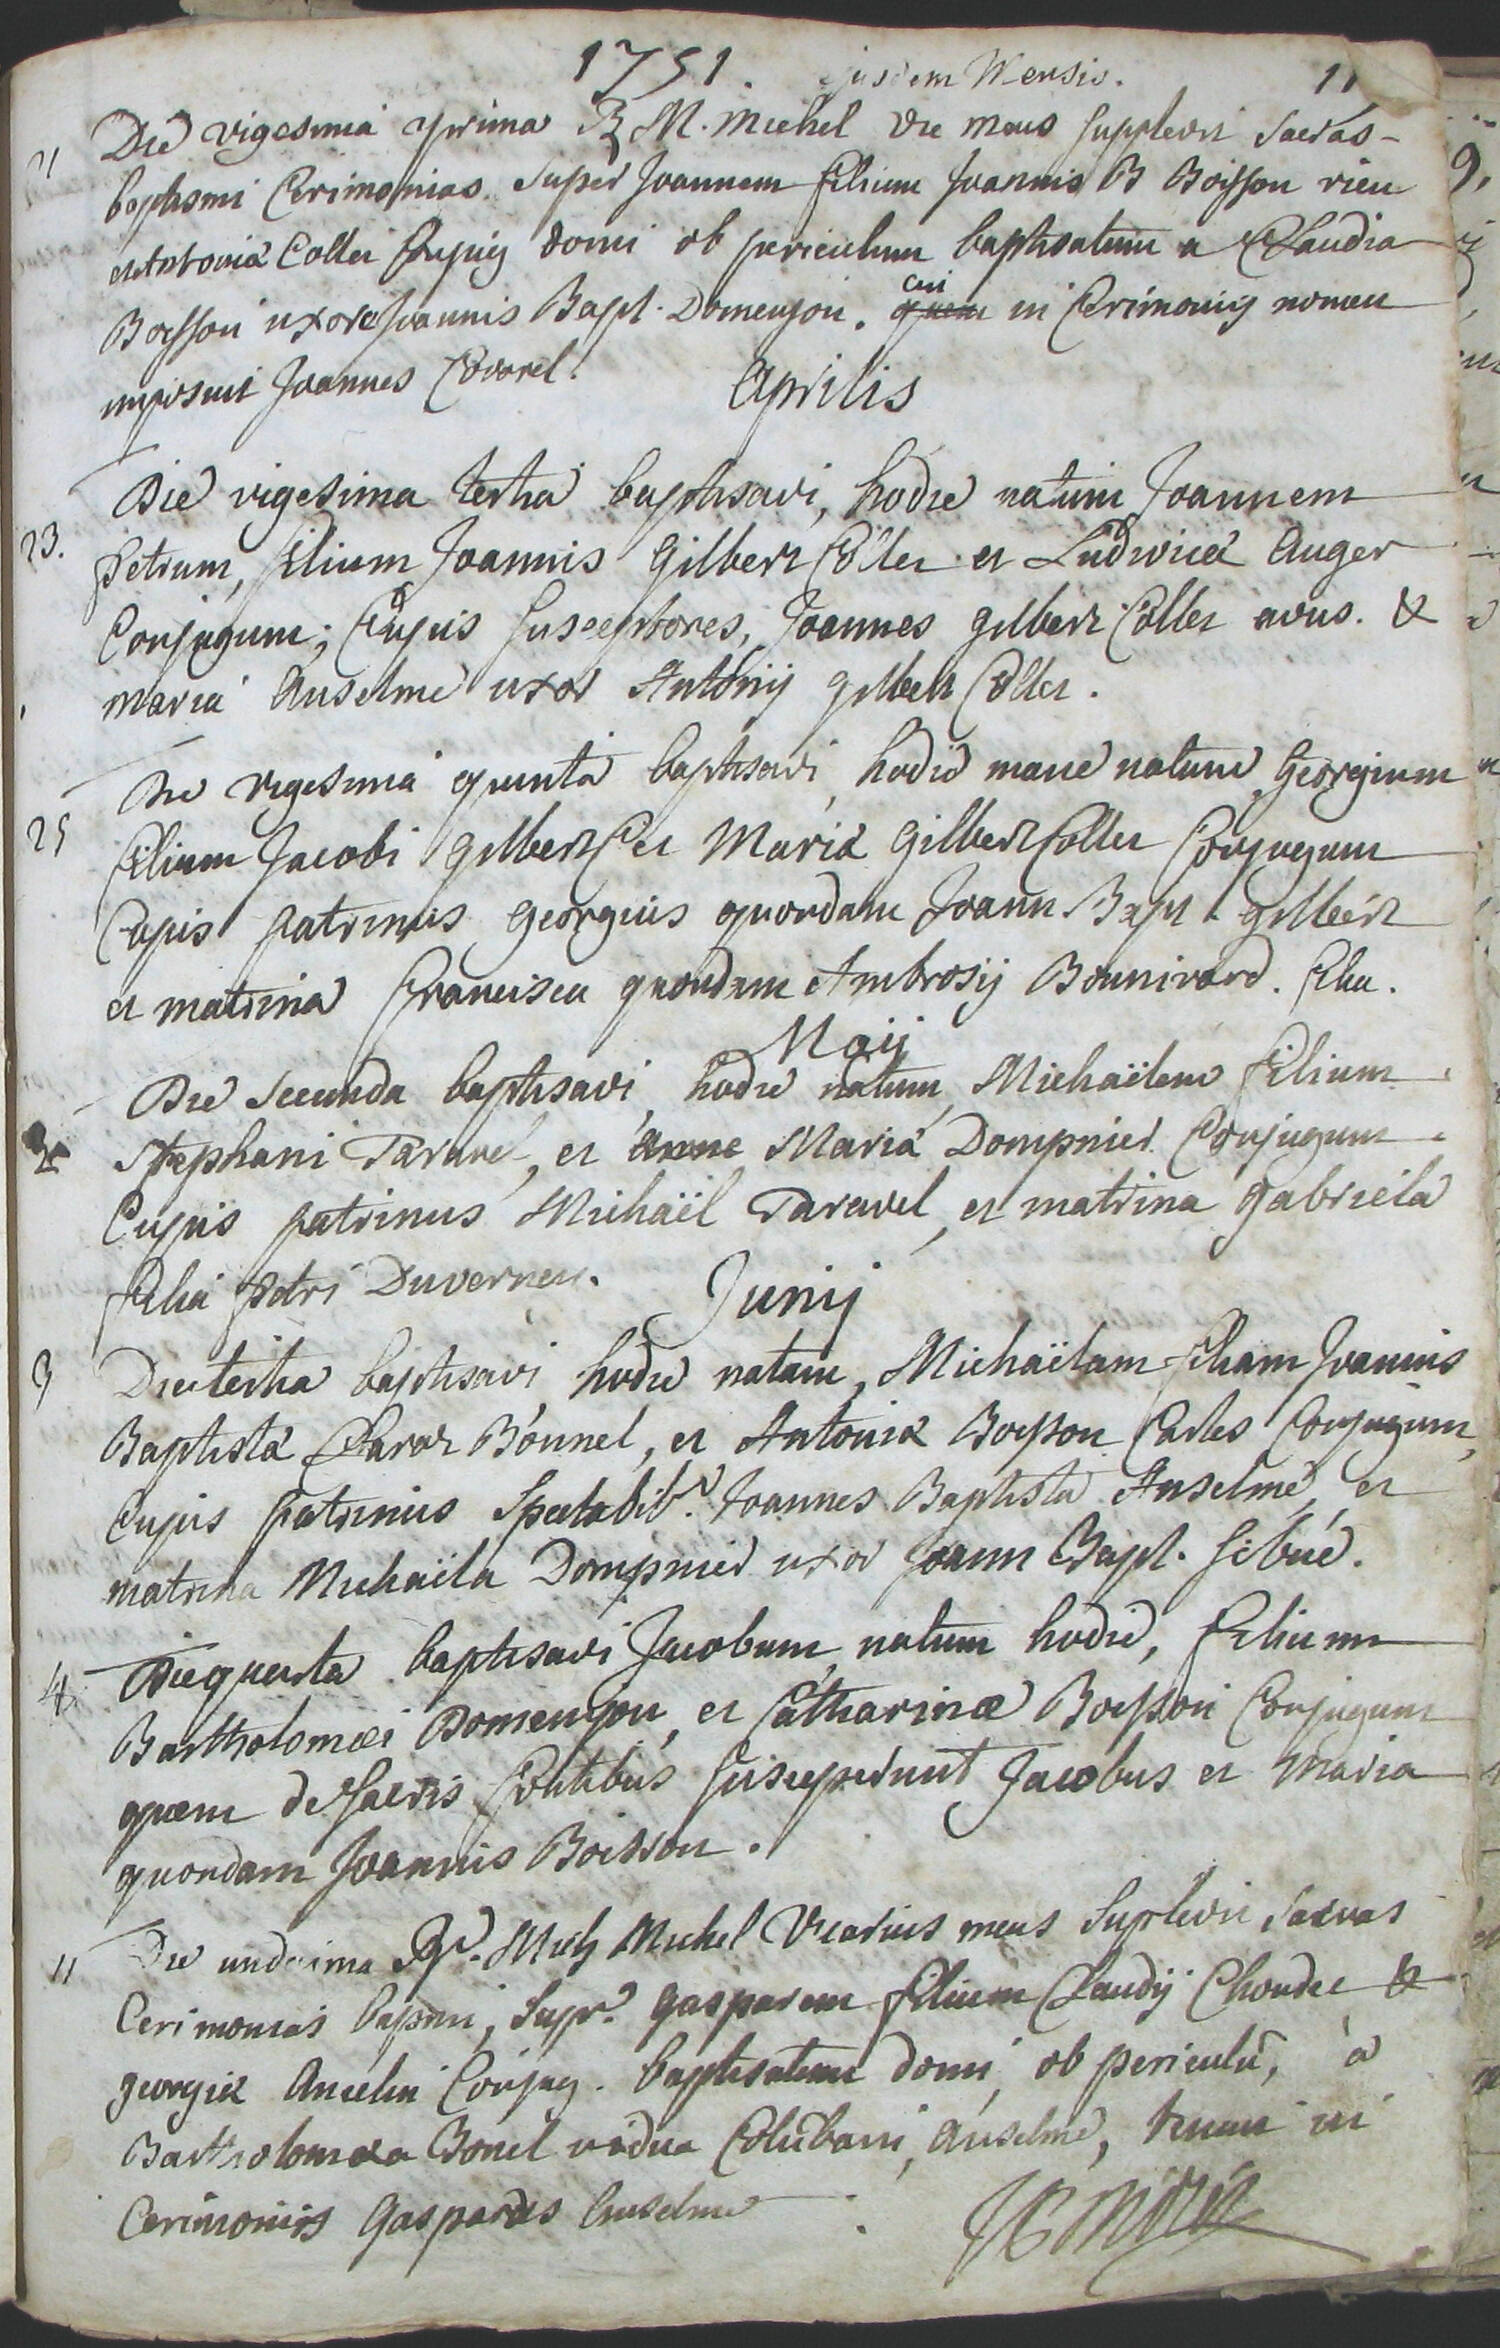 1751. ejusdem Mensis. 11
21 Die vigesima prima R M. Michel vic meus supplevit sacras
baptismi Cerimonias super Joannem filium Joannis B Boisson
et Antonia Collet Conjug domi ob periculum baptisatum a Claudia
Boisson uxore Joannis Bapt. Domenjon. cui in Cerimonijs nomen
imposuit Joannes Covarel.
Aprilis
23. Die vigesima tertia baptisavi, hodie natum Joannem
Petrum, filium Joannis Gilbert Collet et Ludovica Auger
Conjugum; Cujus susceptores, Joannes Gilbert Collet avus. &
maria Anselme uxor Antonij gilbert Collet.
25 Die vigesima quinta baptisavi, hodie mane natum, Georgium
filium Jacobi gilbert C et Maria Gilbert Collet Conjugum
Cujus patrinus georgius quondam Joann Bapt. gilbert
et matrina Francisca quondam Ambrosij Bonnivard. filia.
Maij
2 Die secunda baptisavi, hodie natum, Michaëlem filium
Stephani Taravel, et Anne Maria Dompnier Conjugum.
Cujus patrinus Michaël Taravel, et matrina gabriela
filia petri Duverney.
Junij
3 Die tertia baptisavi, hodie natam, Michaëlam filiam Joannis
Baptista Claraz Bonnel, et Antonia Boisson Carles Conjugum,
Cujus patrinus Spectabil. Joannes Baptista Anselme, et
matrina Michaëla Dompnier uxor Joann Bapt. Sibué.
4. Die quarta baptisavi Jacobum, natum hodie, filium
Bartholomæi Domenjon, et Catharinæ Boisson Conjugum
quem de sacris fontibus susceperunt Jacobus et Maria
quondam Joannis Boisson.
11 Die undecima Rd. Mich Michel Vicarius meus suplevit sacras
Cerimonias bapsmi, supr. gasparem filium Claudij Choudet &
georgia Anselm Conjug. baptisatum domi, ob periculũ, à
Bartholomæa Bonel vidua Columbani, Anselme, tenuit in
Cerimoniis Gaspardus Anselme.